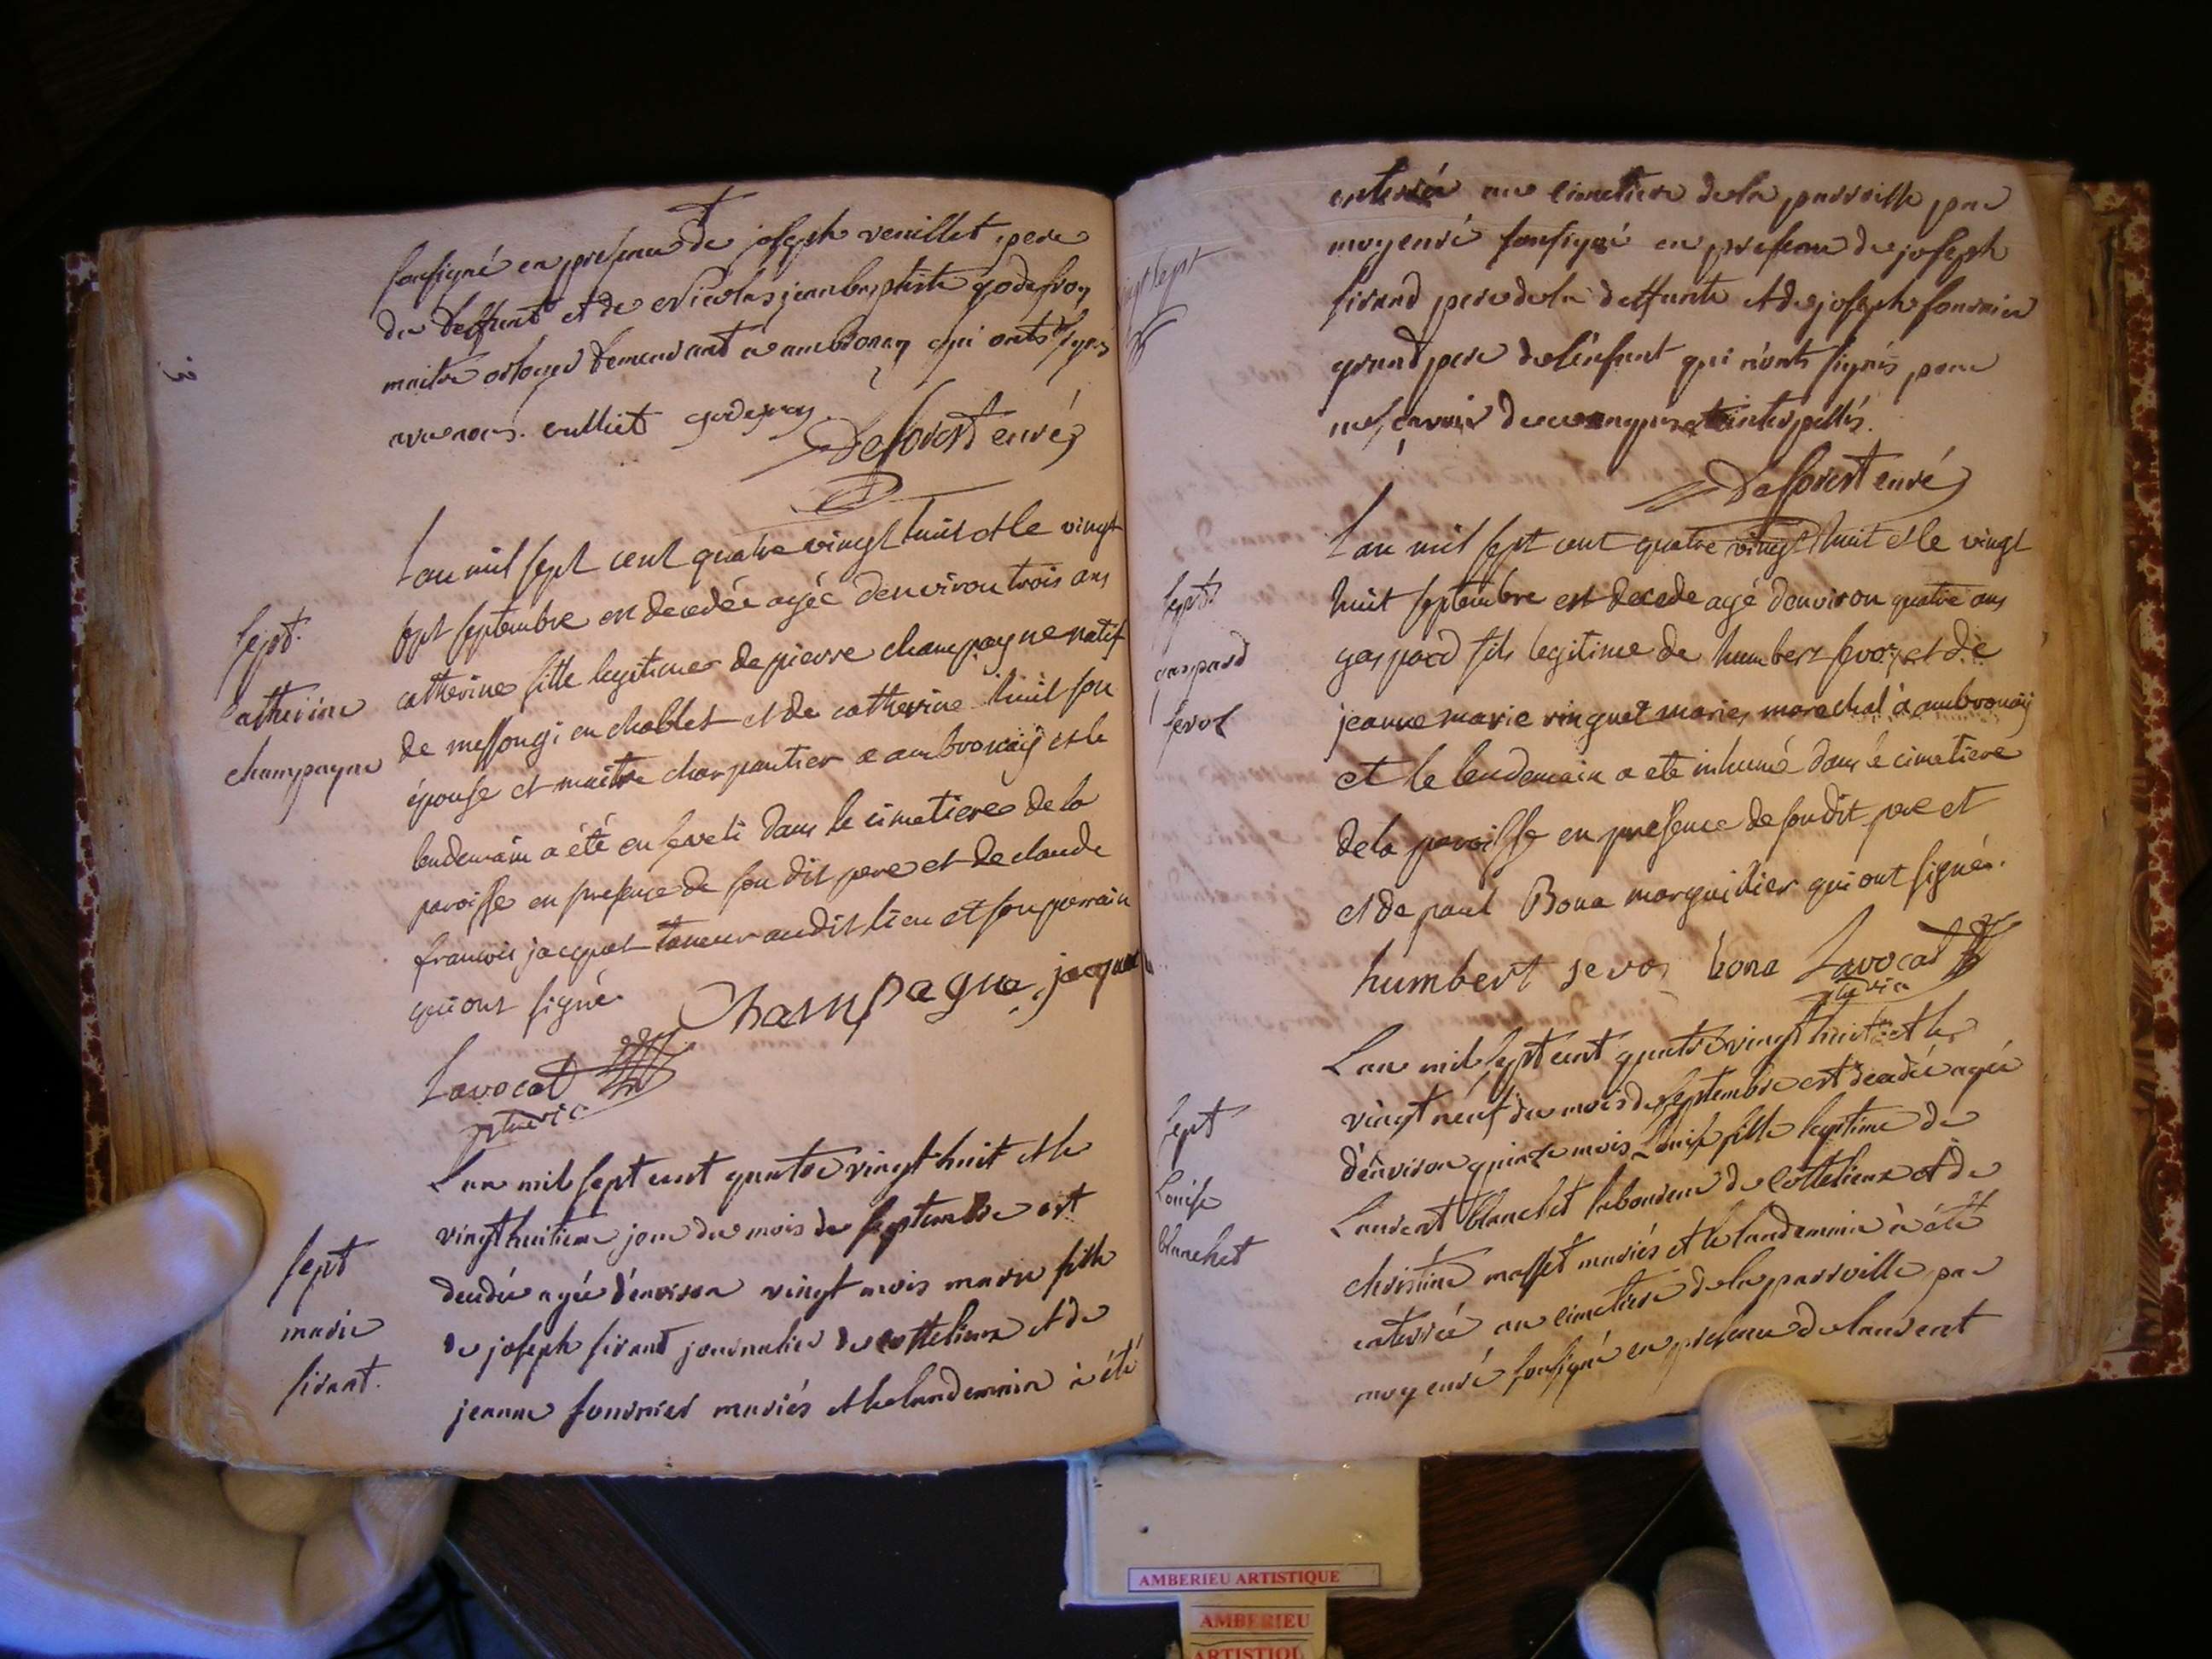 sousigné en presence de joseph veuillet pere
du deffunt et de Nicolas jean baptiste godefroy
maitre orloger demeurant a ambronay qui onts signés
avec nous. godefroy
Deforest curé
L'an mil sept cent quatre vingt huit et le vingt
sept septembre est decedée agée denviron trois ans
catherine fille legitime de pierre champagne natif
de messongi en chablet et de catherine huil son
épouse et maitre charpentier a ambronaÿ et le
lendemain a été en seveli dans le cimetiere de la
paroisse en presence de son dit pere et de claude
francois jacquet taneur audit lieu et son parrain
qui ont signé.
Champagne jacquet
Lavocat
ptre vic
sept.
catherine
champagne
L'an mil sept cent quatre vingt huit et le
vingt huitieme jour du mois de septembre est
decedée agée d'environ vingt mois marie fille
de joseph sirant journalier de cottelieux et de
jeanne fournier mariés et le landemain à été
sept
marie
sirant.
enterrée au cimetiere de la parroisse par
moy curé sousigné en presence de joseph
sirand pere de la deffunte et de joseph fournier
grand pere de l'enfant qui n'onts signés pour
ne sçavoir de ce enquis et interpellés.
Deforest curé
vingt sept
L'an mil sept cent quatre vingt huit et le vingt
huit septembre est decede agé d'environ quatre ans
gaspard fils legitime de humbert sevoz et de
jeanne marie ringuet mariés marechal à ambronaÿ
et le lendemain a eté inhumé dans le cimetiere
de la paroisse en presence de son dit pere et
et de paul Bona marguillier qui ont signé.
humbert sevoz bona Lavocat
ptre vic
sept
gaspard
sevoz
L'an mil sept cent quatre vingt huit et le
vingt neuf du mois de septembre est decedée agée
d'environ quinze mois Louise fille legitime de
Laurent blanchet laboureur de cottelieux et de
christine masset mariés et le landemain à été
enterrée au cimetiere de la parroisse par
moy curé sousigné en presence de laurent
sept
Louise
blanchet
AMBERIEU ARTISTIQUE
AMBERIEU
ARTISTIQUE